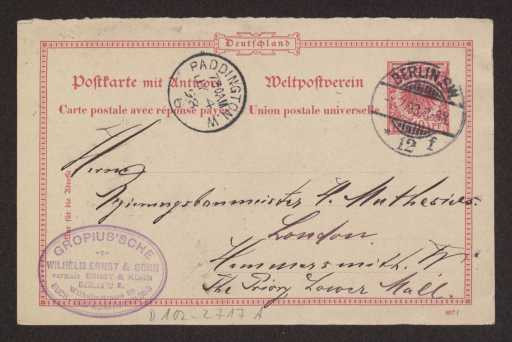 Deutschland
Postkarte mit Antwort
Weltpostverein
Carte postale avec réponse payée
Union postale universelle
PADDINGTON
W
BERLIN S.W.
12 f
Herrn
Regierungsbaumeister H. Muthesius
London
Hammersmith W.
The Priory Lower Mall.
GROPIUS'SCHE
WILHELM ERNST & SOHN
vormals ERNST & KORN
BERLIN W.
D 102-2717 A